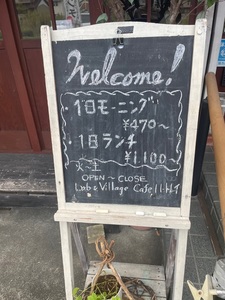 Welcome!
・1日モーニング
¥470～
・1日ランチ
¥1,100～
OPEN ～ CLOSE
Village Cafe